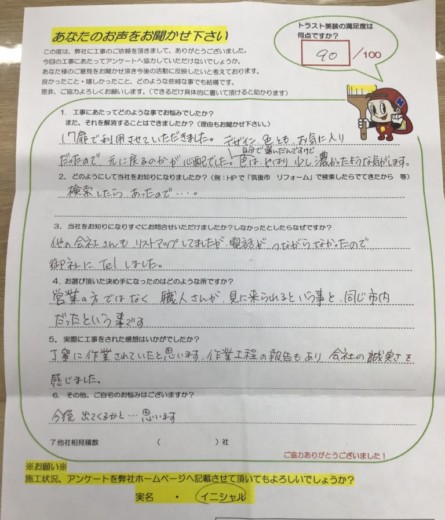 あなたのお声をお聞かせ下さい
この度は、弊社に工事のご依頼を頂きまして、ありがとうございました。
今回の工事にあたってアンケートへ協力していただけないでしょうか。
あなた様のご意見をお聞かせ頂き今後の活動に反映したいと考えております。
良かったこと・嬉しかったこと、どのような些細な事でも結構です。
是非、ご協力よろしくお願いします。(できるだけ具体的に書いて頂けると助かります)
トラスト美装の満足度は
何点ですか?
90 /100
1. 工事にあたってどのような事でお悩みでしたか?
また、それを解消することはできましたか?(理由もお聞かせ下さい)
17扉で利用させていただきました。デザイン、色とも、お気に入り
だったので、元に戻るのかが心配でした。色は、やはり少し濃かったような気がします。
自分で選んだんですけど
2. どのようにして当社をお知りになりましたか?(例:HPで「筑後市 リフォーム」で検索したらでてきたから 等)
検索したら、あったので・・・。
3. 当社をお知りになりすぐにお問合せいただけましたか?しなかったとしたらなぜですか?
他の会社さんもリストアップしてましたが、電話がつながらなかったので
御社にTelしました。
4. お選び頂いた決め手になったのはどのような所ですか?
営業の方ではなく 職人さんが見に来られるという事と、同じ市内
だったという事です
5. 実際に工事をされた感想はいかがでしたか?
丁寧に作業されていたと思います。作業工程の報告もあり 会社の誠実さを
感じました。
6. その他、ご自宅のお悩みはございますか?
今後 出てくるかと…思います
7 他社相見積数 ( )社
ご協力ありがとうございました!
※お願い※
施工状況、アンケートを弊社ホームページへ記載させて頂いてもよろしいでしょうか?
実名 ・ イニシャル